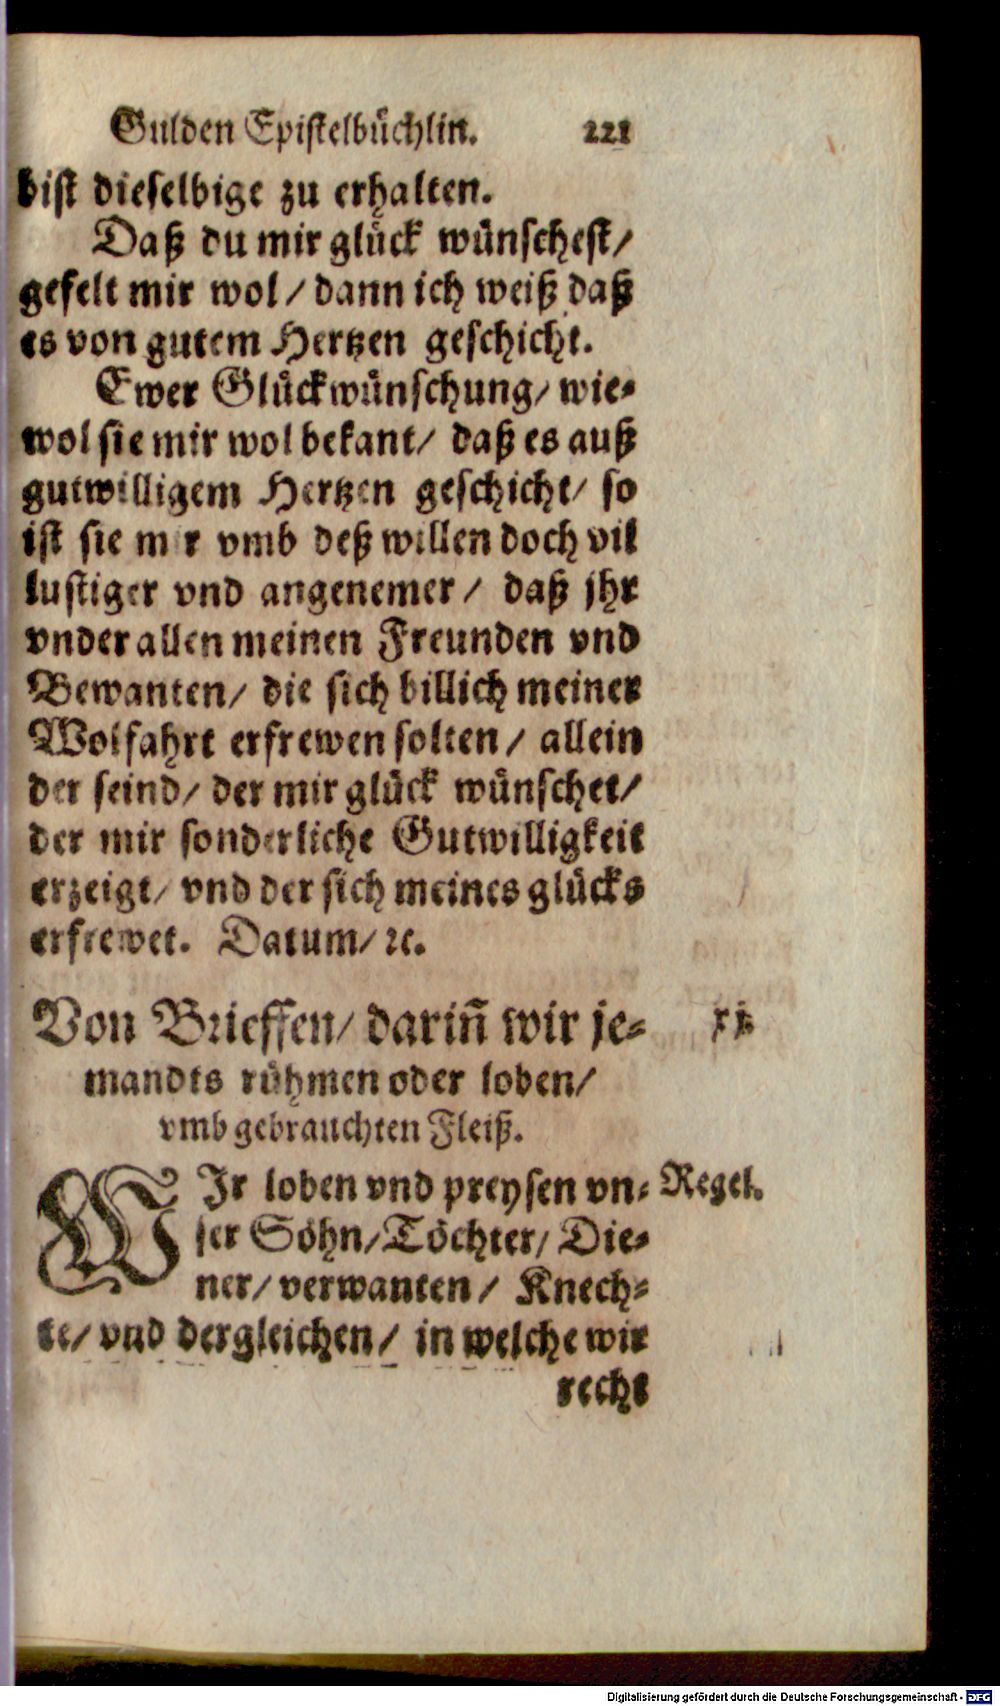 Gulden Epistelbüchlin. 221
bist dieselbige zu erhalten.
Daß du mir glück wünschest/
gefelt mir wol/ dann ich weiß daß
es von gutem Hertzen geschicht.
Ewer Glückwünschung/ wie-
wol sie mir wol bekant/ daß es auß
gutwilligem Hertzen geschicht/ so
ist sie mir vmb deß willen doch vil
lustiger vnd angenemer/ daß jhr
vnder allen meinen Freunden vnd
Bewanten/ die sich billich meiner
Wolfahrt erfrewen solten/ allein
der seind/ der mir glück wünschet/
der mir sonderliche Gutwilligkeit
erzeigt/ vnd der sich meines glücks
erfrewet. Datum/ ꝛc.
Von Brieffen/ dariñ wir je- xj.
mandts rühmen oder loben/
vmb gebrauchten Fleiß.
WJr loben vnd preysen vn- Regel.
ser Söhn/ Töchter/ Die-
ner/ verwanten/ Knech-
te/ vnd dergleichen/ in welche wir
recht
Digitalisierung gefördert durch die Deutsche Forschungsgemeinschaft - DFG